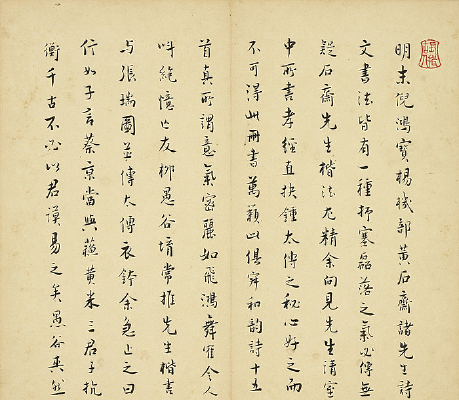 明末倪鴻寶楊機部黃石齋諸先生詩
文書法皆有一種抑塞磊落之氣必傳無
疑石齋先生楷法尤精余向見先生請室
中所書孝經直抉鍾太傅之秘心好之而
不可得此冊書萬籟此俱寂和韵詩十五
首真所謂意氣密麗如飛鴻舞寉令人
叫絕憶亡友柳愚谷堉常推先生楷書
与張瑞圖並傳太傅衣鉢余急止之曰
信如子言蔡京當與蘇黃米三君子抗
衡千古不必以君謨易之矣愚谷爽然